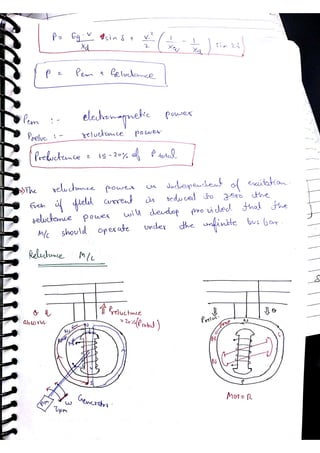 P = Eg.V/Xd sin δ + V²/2 (1/Xq - 1/Xd) sin 2δ
P = Pem + Reluctance
Pem :- electromagnetic power
Preluc :- reluctance power
Preluctance = 10-20% of Ptotal
The reluctance power is independent of excitation.
Even if field current is reduced to zero the
reluctance power will develop provided that the
M/c should operate under the infinite bus bar.
Reluctance M/C
Preluctance
absorb
Generator
Motor